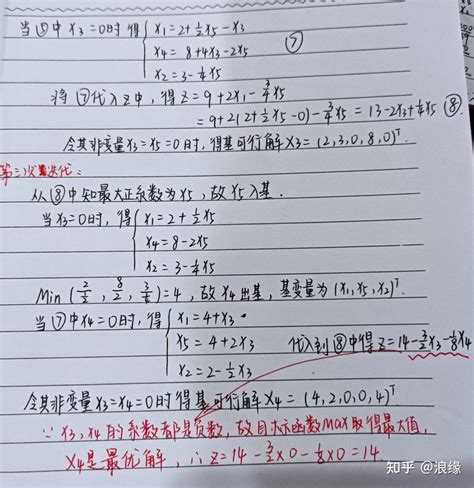 当⑤中 x3=0时 得 { x1=2+½x5-x3
x4=8+4x3-2x5 ⑦
x2=3-¼x5
将⑦代入Z中，得Z=9+2x1-¾x5
=9+2(2+½x5-0)-¾x5=13-2x3+¼x5 ⑧
令其非变量x3=x5=0时，得基可行解 X3=(2,3,0,8,0)ᵀ
第三次迭代：
从⑧中知最大正系数为x5，故x5入基.
当x3=0时，得 { x1=2+½x5
x4=8-2x5
x2=3-¼x5
Min ( , 8/2, )=4，故x4出基，基变量为(x1,x5,x2)ᵀ.
当⑦中x4=0时，得 { x1=4+x3
x5=4+2x3 代入到⑧中得Z=14-3/2x3-⅛x4
x2=2-½x3
令其非变量x3=x4=0时得基可行解X4=(4,2,0,0,4)ᵀ
∵x3,x4的系数都是负数，故目标函数Max取得最大值，
X4是最优解，∴Z=14-3/2×0-⅛×0=14
知乎 @浪缘